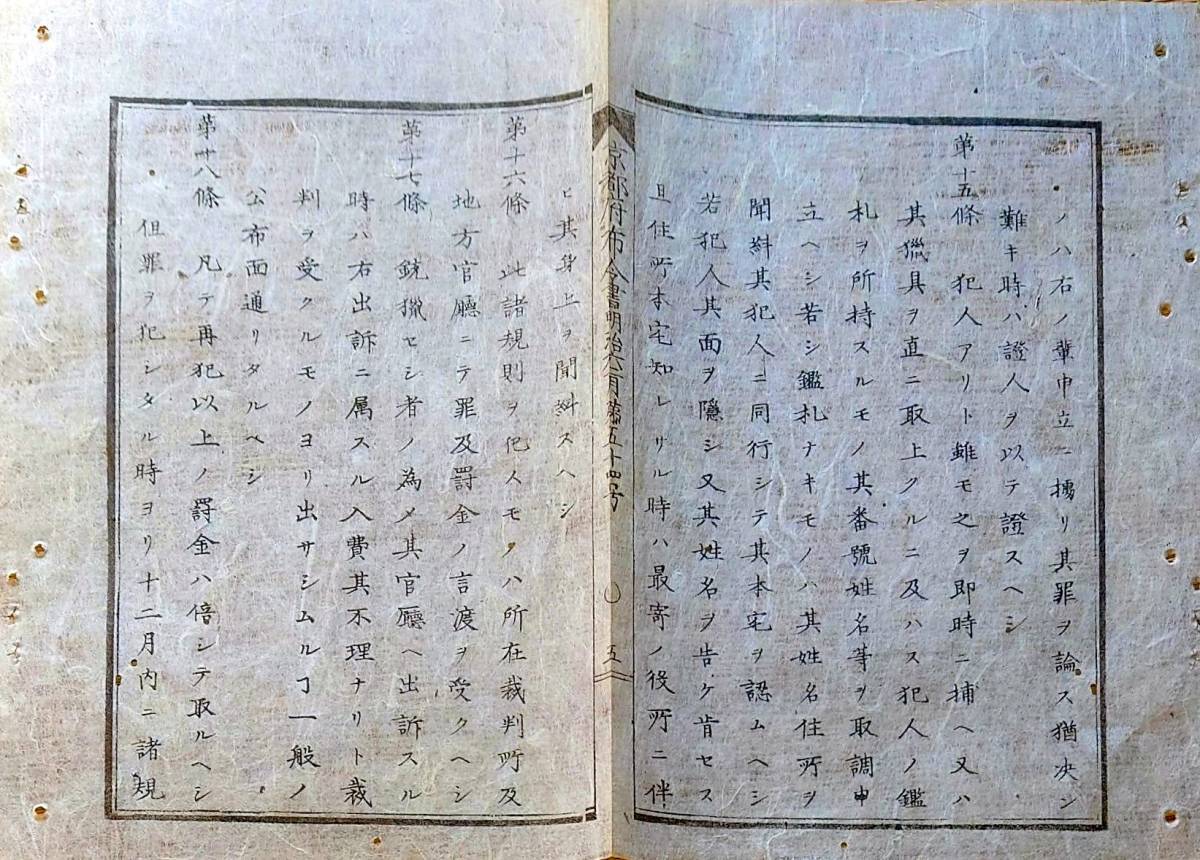 ノハ右ノ輩申立ニ據リ其罪ヲ論ス猶决シ
難キ時ハ證人ヲ以テ證スヘシ
第十五條 犯人アリト雖モ之ヲ即時ニ捕ヘ又ハ
其獵具ヲ直ニ取上クルニ及ハス犯人ノ鑑
札ヲ所持スルモノ其番號姓名等ヲ取調申
立ヘシ若シ鑑札ナキモノハ其姓名住所ヲ
聞糾其犯人ニ同行シテ其本宅ヲ認ムヘシ
若犯人其面ヲ隱シ又其姓名ヲ告ケ肯セス
且住所本宅知レサル時ハ最寄ノ役所ニ伴
京都府布令書明治六年第五十四号
五
ヒ其身上ヲ聞糾スヘシ
第十六條 此諸規則ヲ犯スモノハ所在裁判所及
地方官廳ニテ罪及罰金ノ言渡ヲ受クヘシ
第十七條 銃獵セシ者ノ為メ其官廳ヘ出訴スル
時ハ右出訴ニ属スル入費其不理ナリト裁
判ヲ受クルモノヨリ出サシムルヿ一般ノ
公布面通リタルヘシ
第十八條 凡テ再犯以上ノ罸金ハ倍シテ取ルヘシ
但罪ヲ犯シタル時ヨリ十二月内ニ諸規